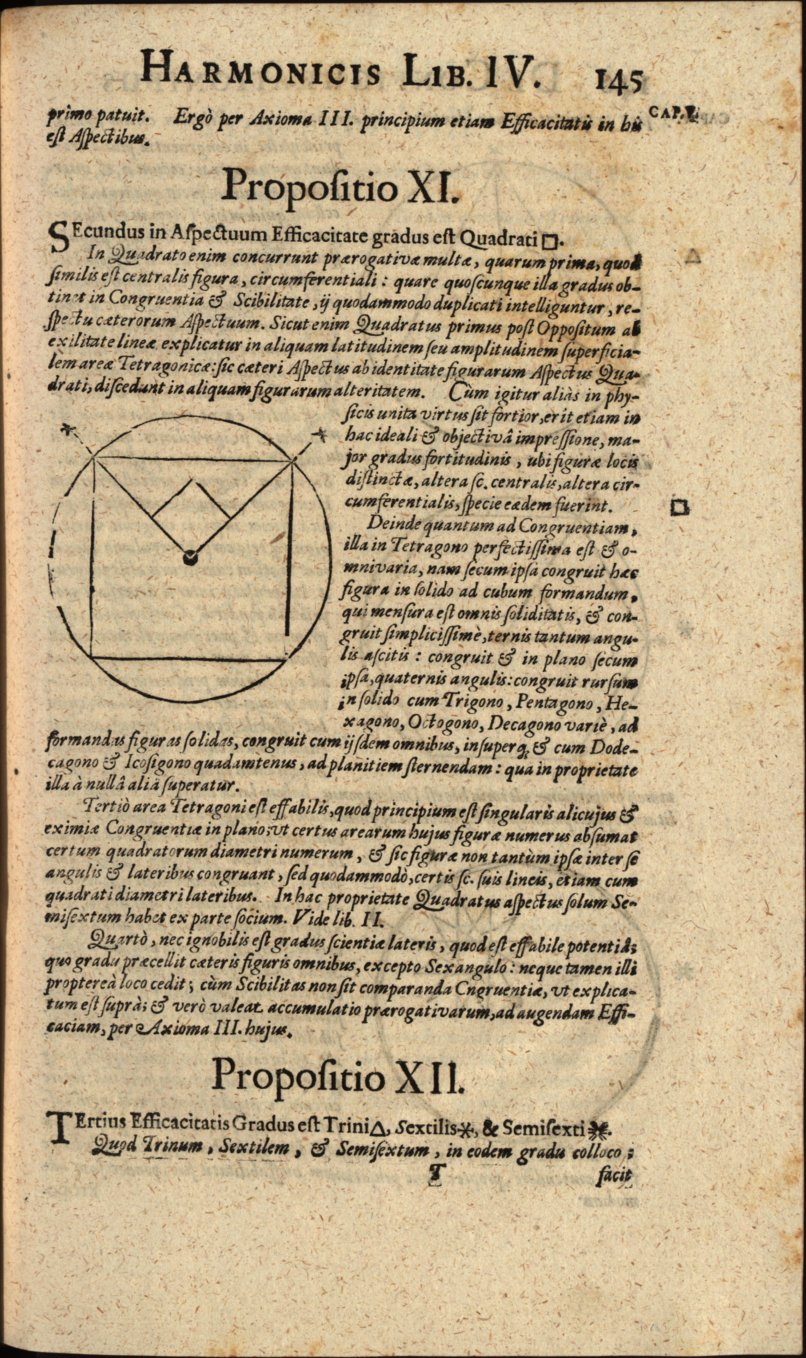 HARMONICIS LIB. IV. 145
primo patuit. Ergò per Axioma III. principium etiam Efficacitatis in his
est Aspectibus.
CAP. V.
Propositio XI.
SEcundus in Aspectuum Efficacitate gradus est Quadrati □.
In Quadrato enim concurrunt prærogativæ multæ, quarum prima, quod
similis est centralis figura, circumferentiali: quare quoscunque illa gradus ob-
tinet in Congruentia & Scibilitate, ij quodammodo duplicati intelliguntur, re-
spectu cæterorum Aspectuum. Sicut enim Quadratus primus post Oppositum ab
exilitate lineæ explicatur in aliquam latitudinem seu amplitudinem superficia-
lem areæ Tetragonicæ: sic cæteri Aspectus ab identitate figurarum Aspectus Qua-
drati, discedunt in aliquam figurarum alteritatem. Cùm igitur aliàs in phy-
sicis unita virtus sit fortior, erit etiam in
hac ideali & objectivâ impressione, ma-
jor gradus fortitudinis, ubi figuræ locis
distinctæ, altera sc. centralis, altera cir-
cumferentialis, specie eædem fuerint.
Deinde quantum ad Congruentiam,
illa in Tetragono perfectissima est & o-
mnivaria, nam secum ipsa congruit hæc
figura in solido ad cubum formandum,
qui mensura est omnis soliditatis, & con-
gruit simplicissimè, ternis tantum angu-
lis ascitis: congruit & in plano secum
ipsa, quaternis angulis: congruit rursùm
in solido cum Trigono, Pentagono, He-
xagono, Octogono, Decagono variè, ad
formandas figuras solidas, congruit cum ijsdem omnibus, insuperq; & cum Dode-
cagono & Icosigono quadamtenus, ad planitiem sternendam: qua in proprietate
illa à nullâ aliâ superatur.
□
Tertiò area Tetragoni est effabilis, quod principium est singularis alicujus &
eximiæ Congruentiæ in plano; vt certus arearum hujus figuræ numerus absumat
certum quadratorum diametri numerum, & sic figuræ non tantùm ipsæ inter se
angulis & lateribus congruant, sed quodammodò, certis sc. suis lineis, etiam cum
quadrati diametri lateribus. In hac proprietate Quadratus aspectus solum Se-
misextum habet ex parte socium. Vide lib. II.
Quartò, nec ignobilis est gradus scientiæ lateris, quod est effabile potentiâ;
quo gradu præcellit cæteris figuris omnibus, excepto Sexangulo: neque tamen illi
propterea loco cedit; cùm Scibilitas non sit comparanda Cngruentiæ, vt explica-
tum est suprà; & verò valeat accumulatio prærogativarum, ad augendam Effi-
caciam, per Axioma III. hujus.
Propositio XII.
TErtius Efficacitatis Gradus est Trini △, Sextilis ⚹, & Semisexti ⚺.
Quod Trinum, Sextilem, & Semisextum, in eodem gradu colloco;
T facit